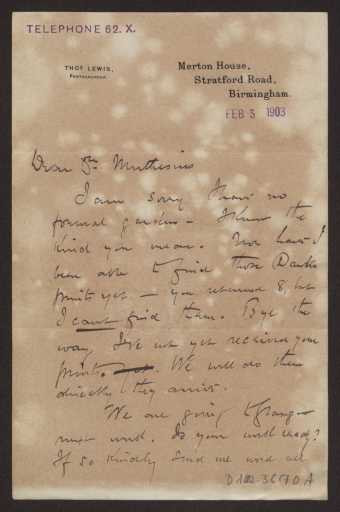 TELEPHONE 62. X.
THOS LEWIS,
PHOTOGRAPHER.
Merton House,
Stratford Road,
Birmingham.
FEB 3 1903
Dear Dr Muthesius
I am sorry I have no
formal gardens - I know the
kind you mean. Nor have I
been able to find those
prints yet - you returned 8 but
I cant find them. Bye the
way I've not yet received your
prints. We will do them
directly they arrive.
We are going to
next week. Is your work ready?
If so kindly send me word
D 102-3670 A